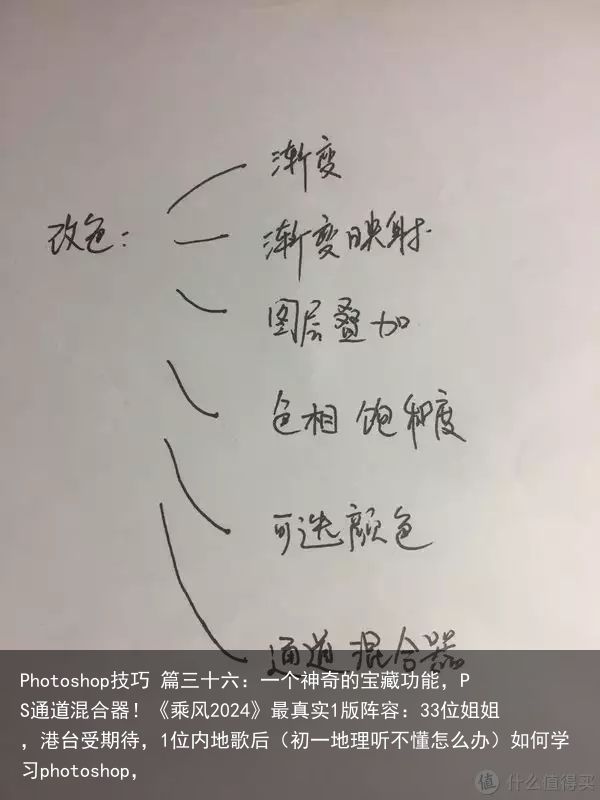 渐变
改色：
渐变映射
图层叠加
色相 饱和度
可选颜色
通道混合器
Photoshop技巧 篇三十六：一个神奇的宝藏功能，P
S通道混合器！《乘风2024》最真实1版阵容：33位姐姐
，港台受期待，1位内地歌后（初一地理听不懂怎么办）如何学
习photoshop，
值 什么值得买